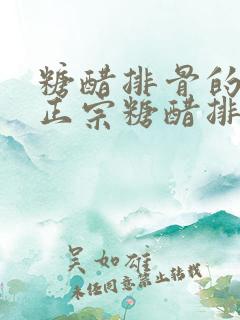 糖醋排骨的
正宗糖醋排
吴如雄
未经同意禁止转载